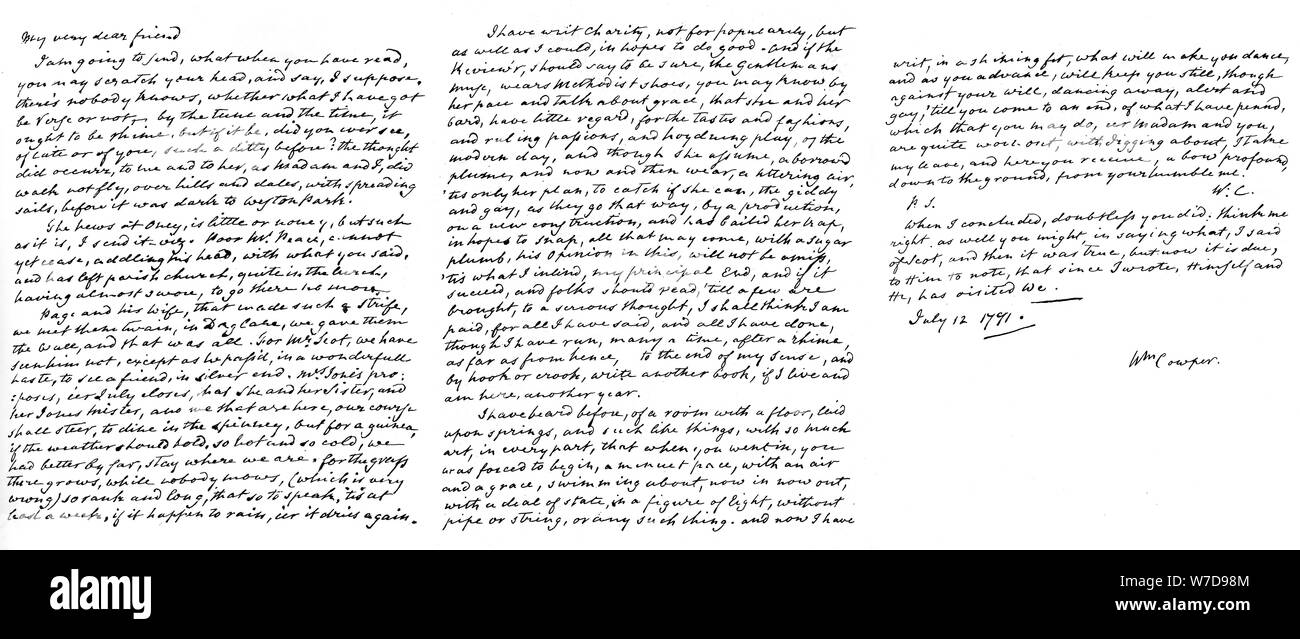 My very dear friend
I am going to send, what when you have read,
you may scratch your head, and say, I suppose,
there's nobody knows, whether what I have got
be Verse or not, by the tune and the time, it
ought to be rhime, but if it be, did you ever see,
of late or of yore, such a ditty before? the thought
did occurr, to me and to her, as Madam and I, did
walk not fly, over hills and dales, with spreading
sails, before it was dark to Weston Park.
The news at Oney, is little or noney, but such
as it is, I send it viz. Poor Mr. Peace, cannot
yet cease, addling his head, with what you said,
and has left parish church, quite in the lurch,
having almost swore, to go there no more.
Page and his wife, that made such a strife,
we met them twain, in Dag Lane, we gave them
the wall, and that was all. For Mr. Scot, we have
seen him not, except as he pass'd, in a wonderfull
haste, to see a friend, in silver end. Mrs. Jones pro:
:poses, e'er July closes, that she and her Sister, and
her Jones Mister, and we that are here, our course
shall steer, to dine in the spinney, but for a guinea,
if the weather should hold, so hot and so cold, we
had better by far, stay where we are. for the grass
there grows, while nobody mows, (which is very
wrong) so rank and long, that so to speak, 'tis at
least a week, if it happen to rain, e'er it dries again.
I have writ Charity, not for popularity, but
as well as I could, in hopes to do good. and if the
Review'r, should say to be sure, the Gentleman's
Muse, wears Methodist shoes, you may know by
her pace and talk about grace, that she and her
bard, have little regard, for the tastes and fashions,
and ruling passions, and hoydning play, of the
modern day, and though she assume, a borrow'd
plume, and now and then wear, a tittering air,
'tis only her plan, to catch if she can, the giddy
and gay, as they go that way, by a production,
on a new construction, and has baited her trap,
in hopes to snap, all that may come, with a sugar
plumb, his opinion in this, will not be amiss,
'tis what I intend, my principal End, and if it
succeed, and folks should read, till a few are
brought, to a serious thought, I shall think I am
paid, for all I have said, and all I have done,
though I have run, many a time, after a rhime,
as far as from hence, to the end of my sense, and
by hook or crook, write another book, if I live and
am here, another year.
I have heard before, of a room with a floor, laid
upon springs, and such like things, with so much
art, in every part, that when you went in, you
was forced to begin, a minuet pace, with an air
and a grace, swimming about, now in now out,
with a deal of state, in a figure of Eight, without
pipe or string, or any such thing. and now I have
writ, in a rhiming fit, what will make you dance,
and as you advance, will keep you still, though
against your will, dancing away, alert and
gay, 'till you come to an end, of what I have penn'd,
which that you may do, e'er Madam and you,
are quite worn out, with jigging about, I take
my leave, and here you receive, a bow profound,
down to the ground, from your humble me.
W. C.
P. S.
When I concluded, doubtless you did think me
right, as well you might, in saying what, I said
of Scot, and then it was true, but now it is due,
to Him to note, that since I wrote, Himself and
He, has visited We.
July 12 1791.
Wm Cowper.
alamy
alamy
Image ID: W7D98M
www.alamy.com